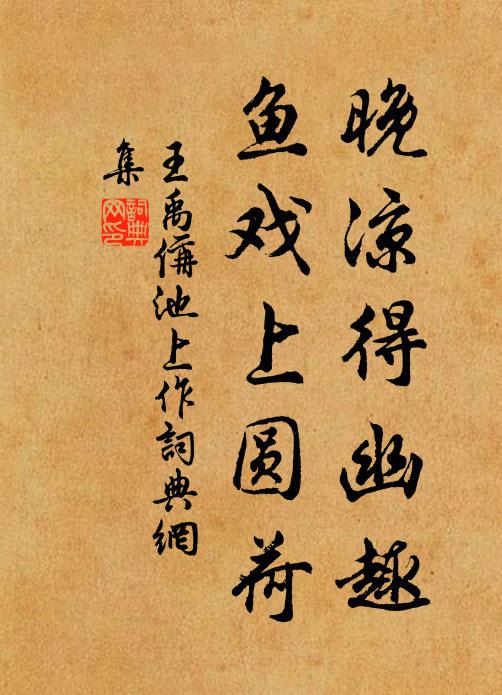 晚凉得幽趣
鱼戏上圆荷
王禹偁池上作詞典網
集
詞典网印